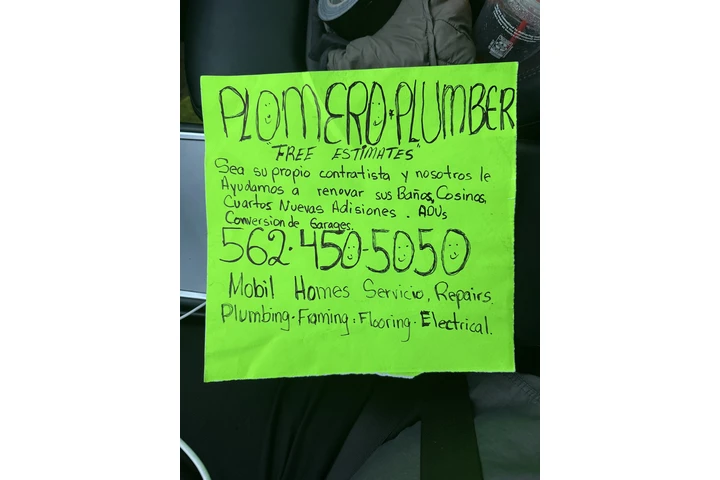 PLOMERO·PLUMBER
"FREE ESTIMATES"
Sea su propio contratista y nosotros le
Ayudamos a renovar sus Baños, Cosinas,
Cuartos Nuevas Adisiones. ADUs
Conversion de Garages.
562·450-5050
Mobil Homes Servicio, Repairs.
Plumbing·Framing·Flooring·Electrical.